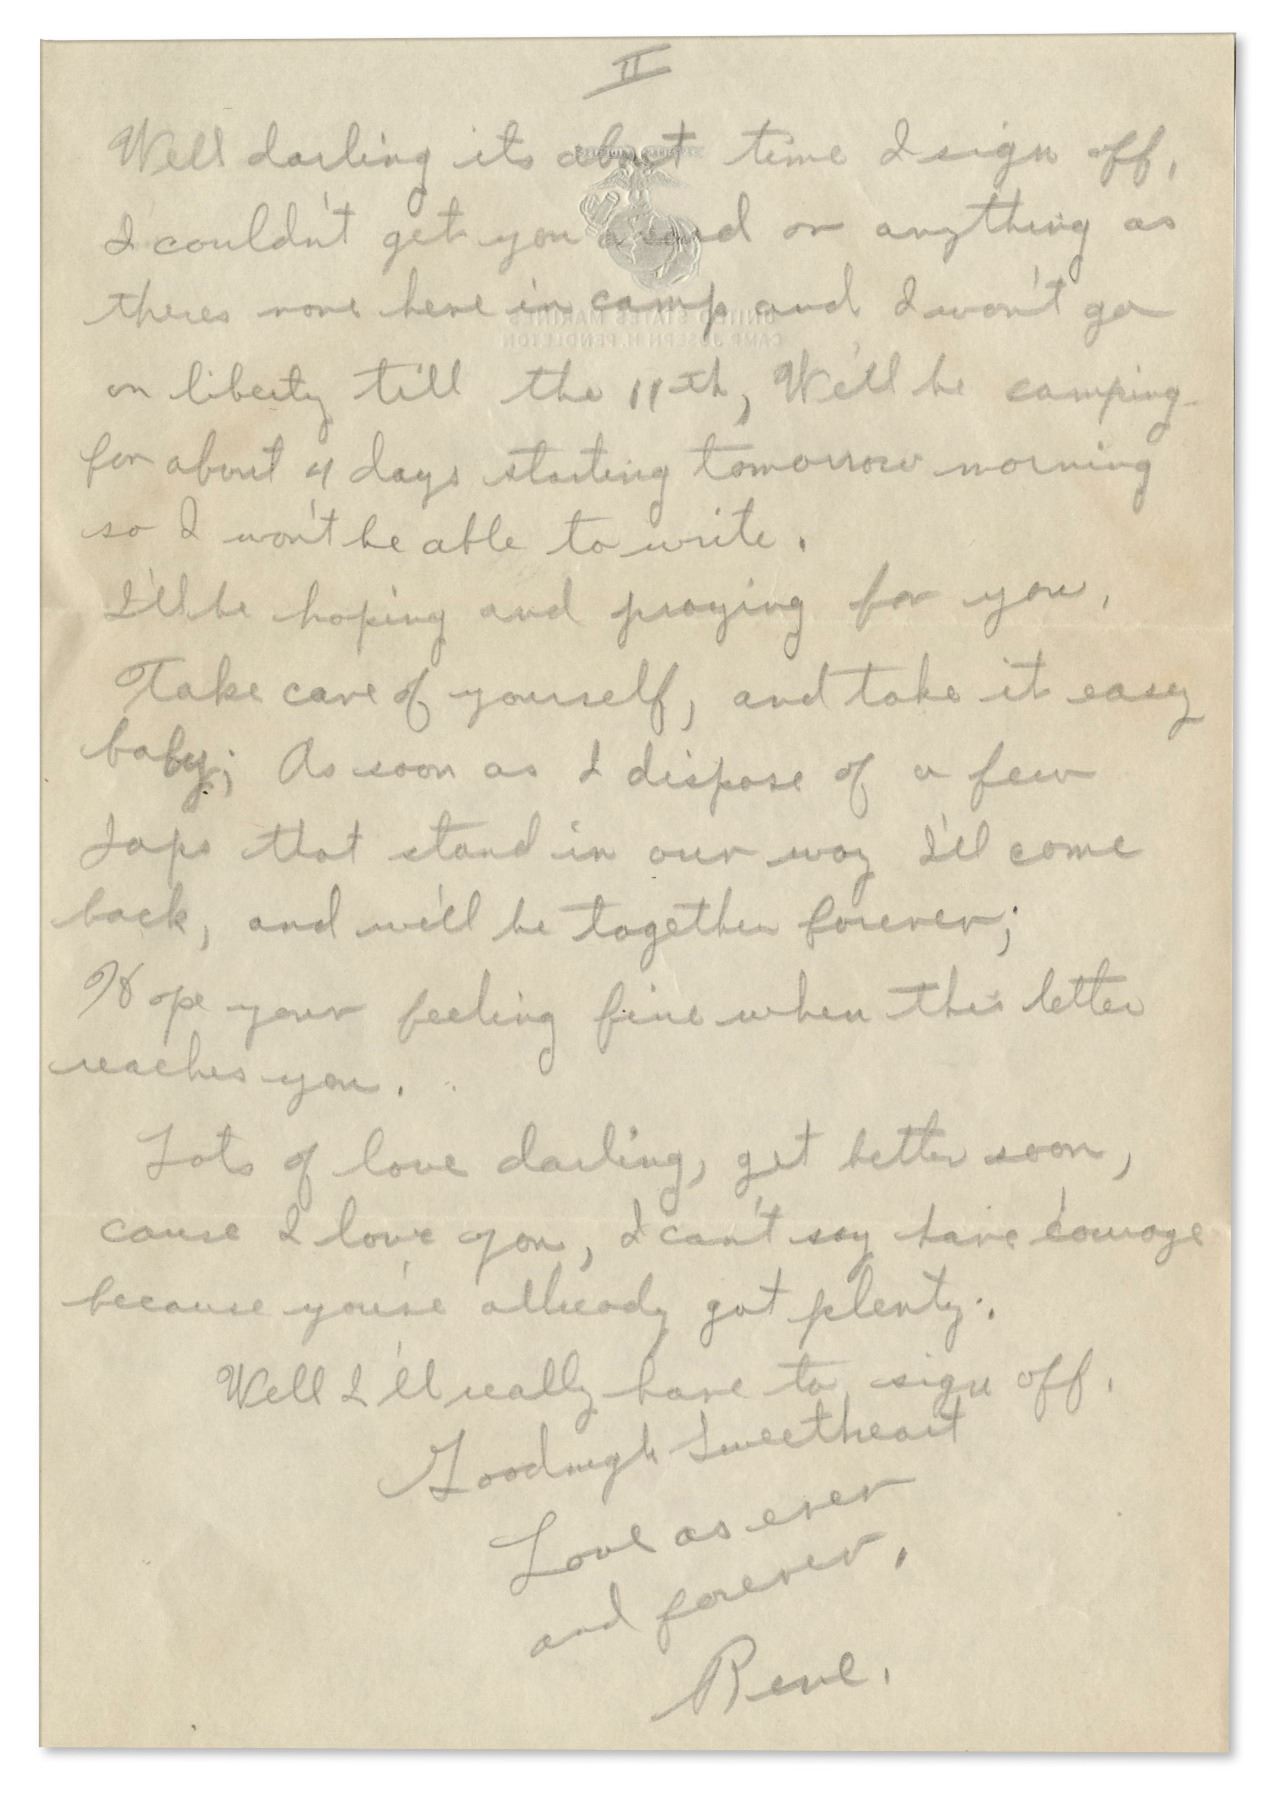 II
Well darling its about time I sign off,
I couldn't get you a card or anything as
theres none here in camp and I won't go
on liberty till the 11th, We'll be camping
for about 4 days starting tomorrow morning
so I won't be able to write.
I'll be hoping and praying for you,
Take care of yourself, and take it easy
baby; As soon as I dispose of a few
Japs that stand in our way I'll come
back, and we'll be together forever;
Hope your feeling fine when this letter
reaches you.
Lots of love darling, get better soon,
cause I love you, I can't say have courage
because you've already got plenty.
Well I'll really have to sign off.
Goodnigh Sweetheart
Love as ever
and forever,
Rene.
UNITED STATES MARINES
CAMP JOSEPH H. PENDLETON